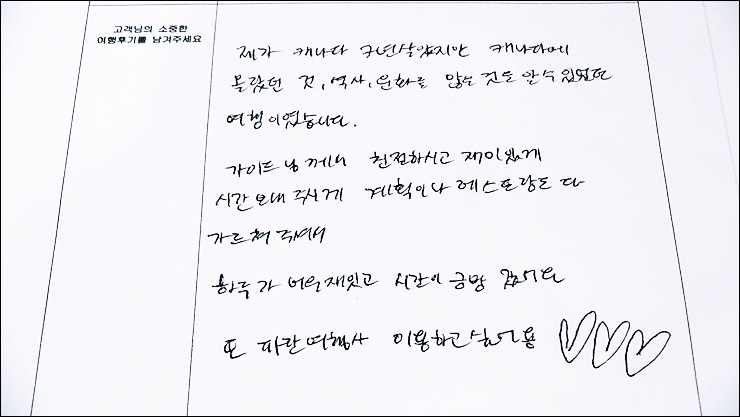 고객님의 소중한
여행후기를 남겨주세요
제가 캐나다 7년살았지만 캐나다에
몰랐던 것, 역사, 문화를 많은 것을 알수 있었던
여행이였습니다.
가이드님께서 친절하시고 재미있게
시간 보내 주시게 계획이나 레스토랑도 다
가르쳐 주셔서
하루가 너무 재밌고 시간이 금방 갔어요
또 파란여행사 이용하고 싶어용